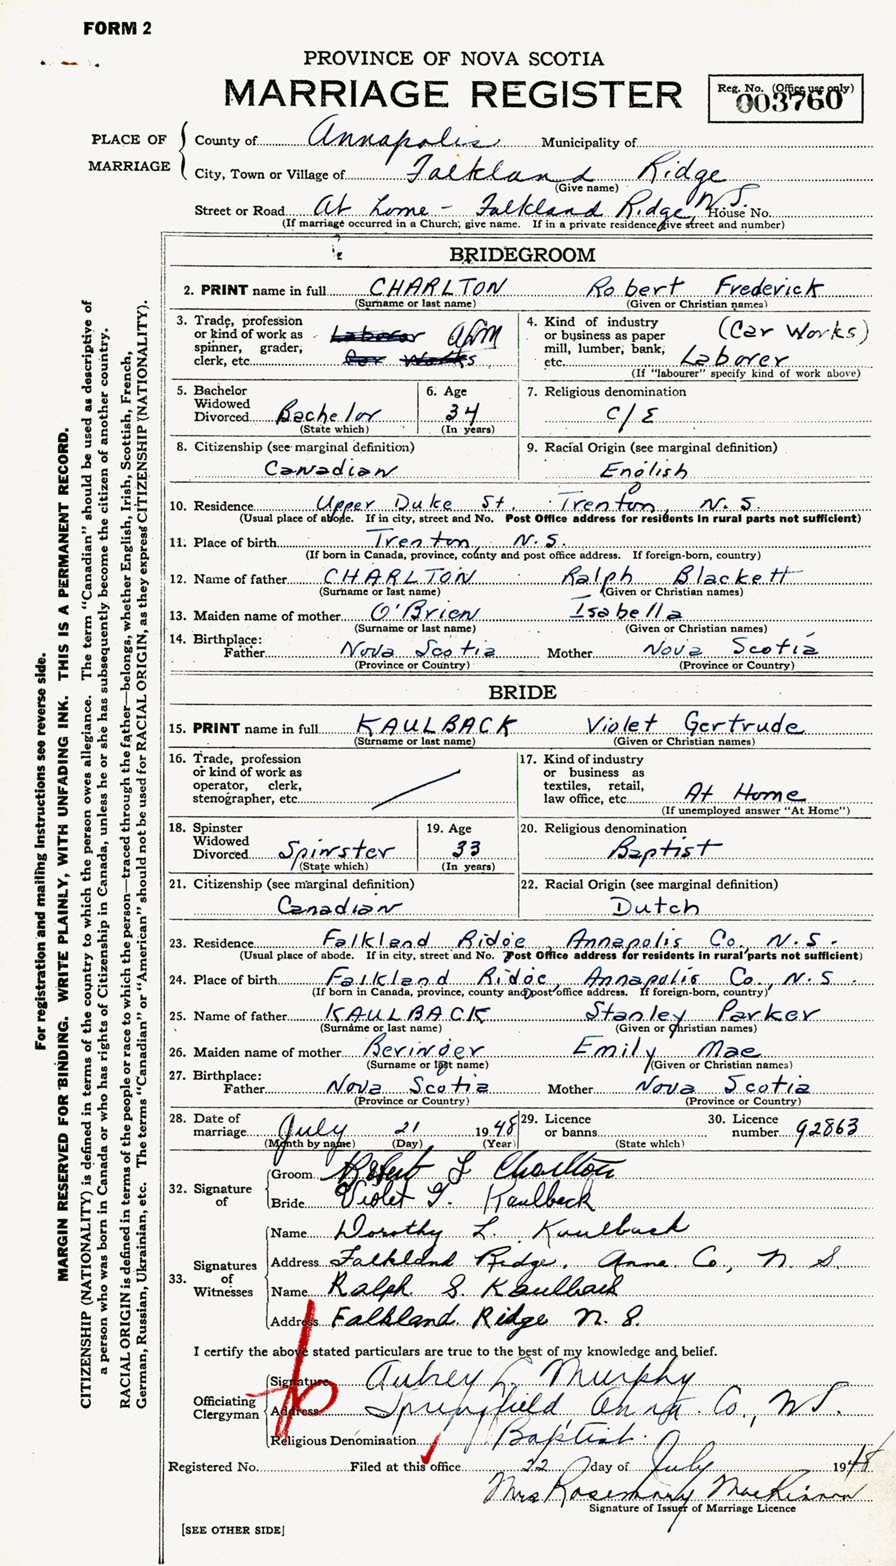 FORM 2
PROVINCE OF NOVA SCOTIA
MARRIAGE REGISTER
Reg. No. (Office use only)
003760
PLACE OF MARRIAGE
County of Annapolis Municipality of
City, Town or Village of Falkland Ridge
(Give name)
Street or Road At home - Falkland Ridge, N.S. House No.
(If marriage occurred in a Church, give name. If in a private residence give street and number)
BRIDEGROOM
2. PRINT name in full CHARLTON Robert Frederick
(Surname or last name) (Given or Christian names)
3. Trade, profession or kind of work as spinner, grader, clerk, etc. Laborer Car Works
4. Kind of industry or business as paper mill, lumber, bank, etc. (Car Works) Laborer
(If "labourer" specify kind of work above)
5. Bachelor Widowed Divorced Bachelor
(State which)
6. Age 34
(In years)
7. Religious denomination C/E
8. Citizenship (see marginal definition) Canadian
9. Racial Origin (see marginal definition) English
10. Residence Upper Duke St. Trenton, N.S.
(Usual place of abode. If in city, street and No. Post Office address for residents in rural parts not sufficient)
11. Place of birth Trenton, N.S.
(If born in Canada, province, county and post office address. If foreign-born, country)
12. Name of father CHARLTON Ralph Blackett
(Surname or last name) (Given or Christian names)
13. Maiden name of mother O'Brien Isabella
(Surname or last name) (Given or Christian names)
14. Birthplace:
Father Nova Scotia Mother Nova Scotia
(Province or Country) (Province or Country)
BRIDE
15. PRINT name in full KAULBACK Violet Gertrude
(Surname or last name) (Given or Christian names)
16. Trade, profession or kind of work as operator, clerk, stenographer, etc.
17. Kind of industry or business as textiles, retail, law office, etc. At Home
(If unemployed answer "At Home")
18. Spinster Widowed Divorced Spinster
(State which)
19. Age 33
(In years)
20. Religious denomination Baptist
21. Citizenship (see marginal definition) Canadian
22. Racial Origin (see marginal definition) Dutch
23. Residence Falkland Ridge, Annapolis Co., N.S.
(Usual place of abode. If in city, street and No. Post Office address for residents in rural parts not sufficient)
24. Place of birth Falkland Ridge, Annapolis Co., N.S.
(If born in Canada, province, county and post office address. If foreign-born, country)
25. Name of father KAULBACK Stanley Parker
(Surname or last name) (Given or Christian names)
26. Maiden name of mother Beringer Emily Mae
(Surname or last name) (Given or Christian names)
27. Birthplace:
Father Nova Scotia Mother Nova Scotia
(Province or Country) (Province or Country)
28. Date of marriage July 21 1948
(Month by name) (Day) (Year)
29. Licence or banns
(State which)
30. Licence number 92863
32. Signature of
Groom Robert F Charlton
Bride Violet G. Kaulback
33. Signatures of Witnesses
Name Dorothy L. Kaulback
Address Falkland Ridge, Anna Co., N.S.
Name Ralph S. Kaulback
Address Falkland Ridge N.S.
I certify the above stated particulars are true to the best of my knowledge and belief.
Officiating Clergyman
Signature Aubrey L. Murphy
Address Springfield Anna. Co., N.S.
Religious Denomination Baptist.
Registered No. Filed at this office 22 day of July 1948
Mrs Rosemary MacKinnon
Signature of Issuer of Marriage Licence
[SEE OTHER SIDE]
For registration and mailing instructions see reverse side.
MARGIN RESERVED FOR BINDING. WRITE PLAINLY, WITH UNFADING INK. THIS IS A PERMANENT RECORD.
CITIZENSHIP (NATIONALITY) is defined in terms of the country to which the person owes allegiance. The term "Canadian" should be used as descriptive of
a person who was born in Canada or who has rights of Citizenship in Canada, unless he or she has subsequently become the citizen of another country.
RACIAL ORIGIN is defined in terms of the people or race to which the person—traced through the father—belongs, whether English, Irish, Scottish, French,
German, Russian, Ukrainian, etc. The terms "Canadian" or "American" should not be used for RACIAL ORIGIN, as they express CITIZENSHIP (NATIONALITY).